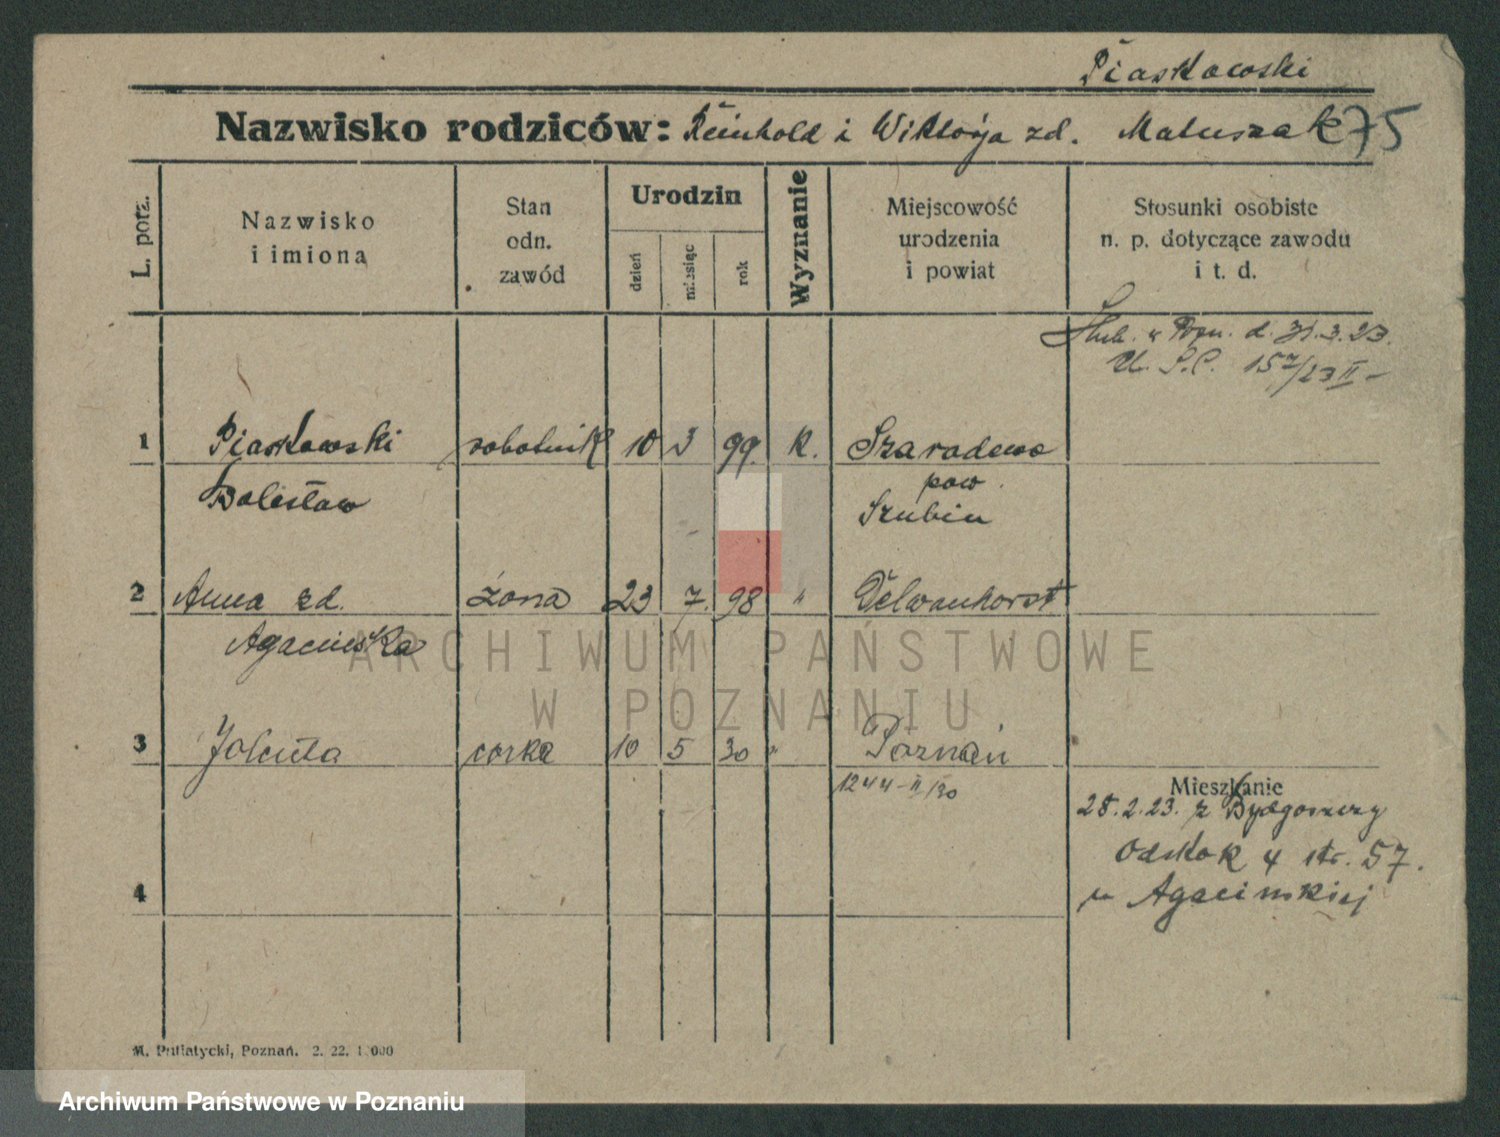 Piaskowski
Nazwisko rodziców: Reinhold i Wiktorja zd. Matuszak 75
L. porz.
Nazwisko
i imiona
Stan
odn.
zawód
Urodzin
dzień
miesiąc
rok
Wyznanie
Miejscowość
urodzenia
i powiat
Stosunki osobiste
n. p. dotyczące zawodu
i t. d.
Ślub. w Pozn. d. 31.3.23.
U. S.C. 157/23 II -
1 Piaskowski robotnik 10 3 99. k. Szaradowo
Bolesław pow.
Szubin
2 Anna zd. żona 23 7. 98 " Delmenhorst
Agacińska
3 Jolenta corka 10 5 30 " Poznań
1244-II/30
Mieszkanie
28.2.23. z Bydgoszczy
Odskok 4 str. 57.
u Agacinskiej
4
M. Putiatycki, Poznań. 2. 22. 1 000
ARCHIWUM PAŃSTWOWE
W POZNANIU
Archiwum Państwowe w Poznaniu